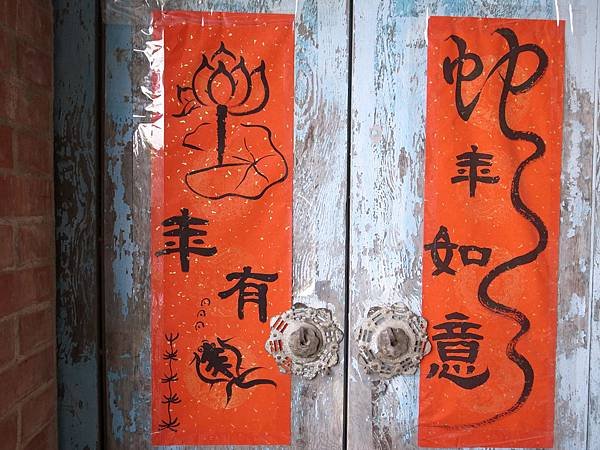 蛇年如意
年有